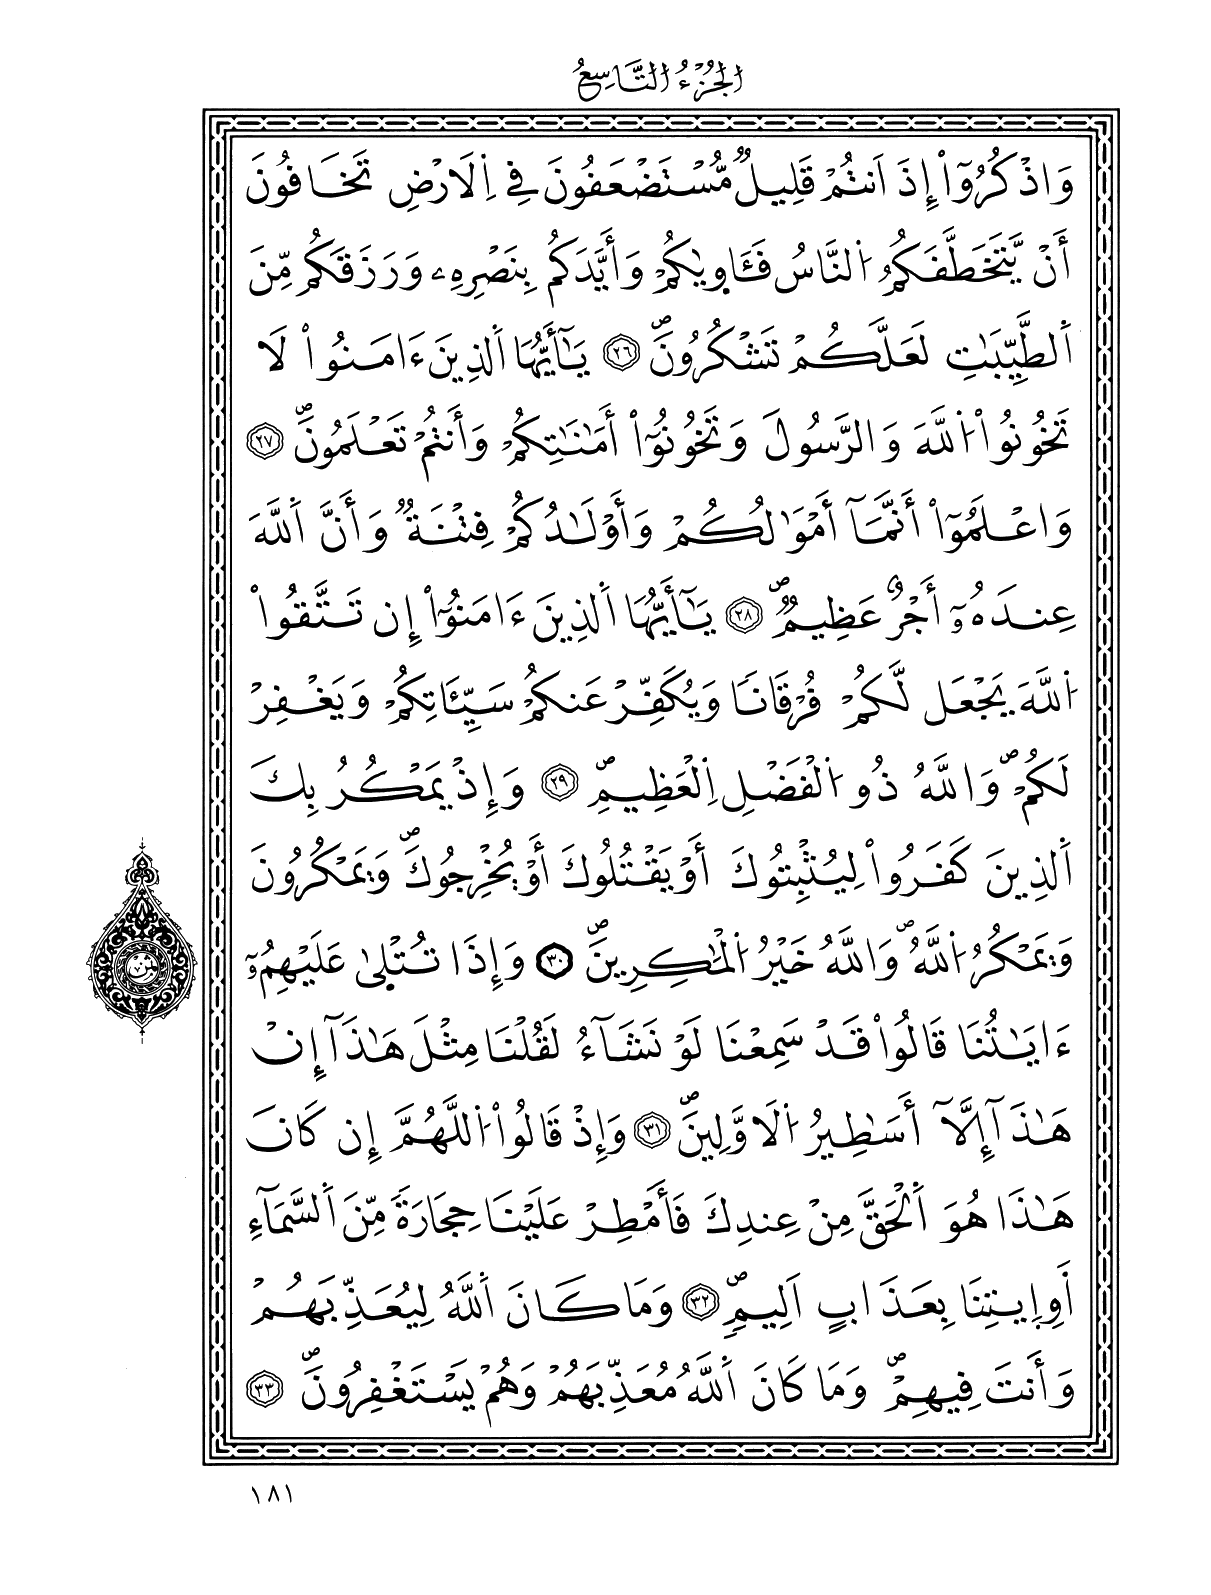 الجُزْءُ التَّاسِعُ
وَاذْكُرُوٓاْ إِذَ اَنتُمْ قَلِيلٌ مُّسْتَضْعَفُونَ فِے اِ۬لَارْضِ تَخَافُونَ
أَنْ يَّتَخَطَّفَكُمُ اُ۬لنَّاسُ فَـَٔاو۪يٰكُمْ وَأَيَّدَكُم بِنَصْرِهِۦ وَرَزَقَكُم مِّنَ
اَ۬لطَّيِّبَٰتِ لَعَلَّكُمْ تَشْكُرُونَۖ ٢٦ يَٰٓأَيُّهَا اَ۬لذِينَ ءَامَنُواْ لَا
تَخُونُواْ اُ۬للَّهَ وَالرَّسُولَ وَتَخُونُوٓاْ أَمَٰنَٰتِكُمْ وَأَنتُمْ تَعْلَمُونَۖ ٢٧
وَاعْلَمُوٓاْ أَنَّمَآ أَمْوَٰلُكُمْ وَأَوْلَٰدُكُمْ فِتْنَةٌ وَأَنَّ اَ۬للَّهَ
عِندَهُۥٓ أَجْرٌ عَظِيمٌۖ ٢٨ يَٰٓأَيُّهَا اَ۬لذِينَ ءَامَنُوٓاْ إِن تَتَّقُواْ
اُ۬للَّهَ يَجْعَل لَّكُمْ فُرْقَاناٗ وَيُكَفِّرْ عَنكُمْ سَيِّـَٔاتِكُمْ وَيَغْفِرْ
لَكُمْۖ وَاللَّهُ ذُو اُ۬لْفَضْلِ اِ۬لْعَظِيمِۖ ٢٩ وَإِذْ يَمْكُرُ بِكَ
اَ۬لذِينَ كَفَرُواْ لِيُثْبِتُوكَ أَوْ يَقْتُلُوكَ أَوْ يُخْرِجُوكَۖ وَيَمْكُرُونَ
وَيَمْكُرُ اُ۬للَّهُۖ وَاللَّهُ خَيْرُ اُ۬لْمَٰكِرِينَۖ ٣٠ وَإِذَا تُتْل۪يٰ عَلَيْهِمُۥٓ
ءَايَٰتُنَا قَالُواْ قَدْ سَمِعْنَا لَوْ نَشَآءُ لَقُلْنَا مِثْلَ هَٰذَآ إِنْ
هَٰذَآ إِلَّآ أَسَٰطِيرُ اُ۬لَاوَّلِينَۖ ٣١ وَإِذْ قَالُواْ اُ۬للَّهُمَّ إِن كَانَ
هَٰذَا هُوَ اَ۬لْحَقَّ مِنْ عِندِكَ فَأَمْطِرْ عَلَيْنَا حِجَارَةٗ مِّنَ اَ۬لسَّمَآءِ
أَوِ اِيتِنَا بِعَذَابٍ اَلِيمٖۖ ٣٢ وَمَا كَانَ اَ۬للَّهُ لِيُعَذِّبَهُمْ
وَأَنتَ فِيهِمْۖ وَمَا كَانَ اَ۬للَّهُ مُعَذِّبَهُمْ وَهُمْ يَسْتَغْفِرُونَۖ ٣٣
ثمن
١٨١